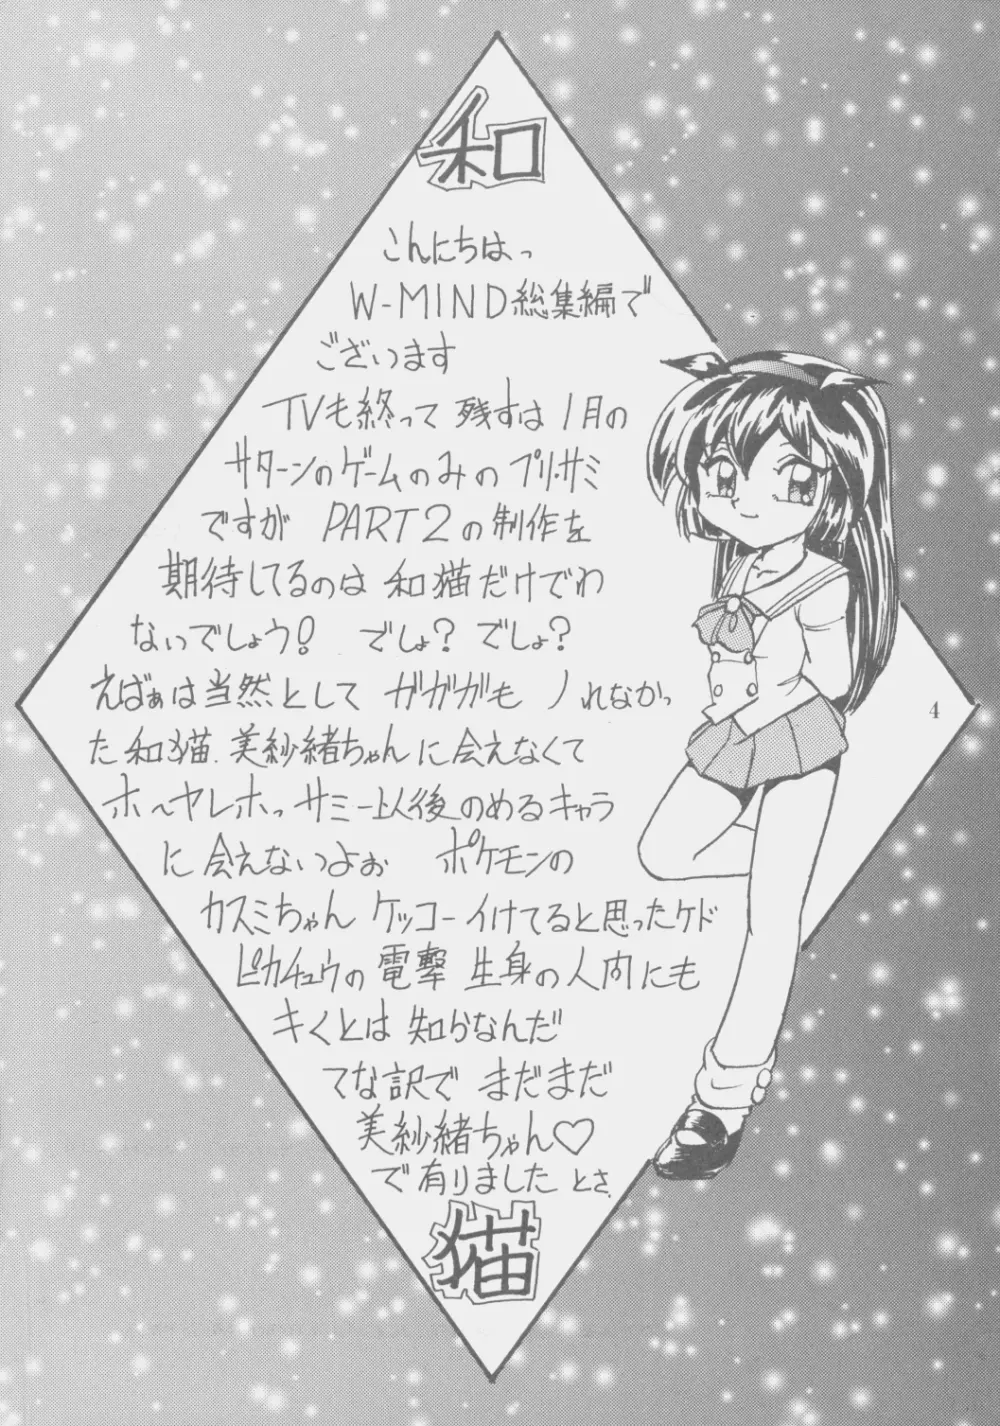 和
こんにちはっ
W-MIND総集編で
ございます
TVも終って 残すは 1月の
サターンのゲームのみの プリ・サミ
ですが PART2の制作を
期待してるのは 和猫だけでわ
ないでしょう! でしょ? でしょ?
えばぁは当然として ガガガも ノれなかっ
た和猫、美紗緒ちゃんに会えなくて
ホ〜ヤレホっ サミー以後のめるキャラ
に会えないっよぉ ポケモンの
カスミちゃん ケッコーイけてると思ったケド
ピカチュウの電撃 生身の人間にも
キくとは 知らなんだ
てな訳で まだまだ
美紗緒ちゃん♡
で有りました とさ.
猫
4